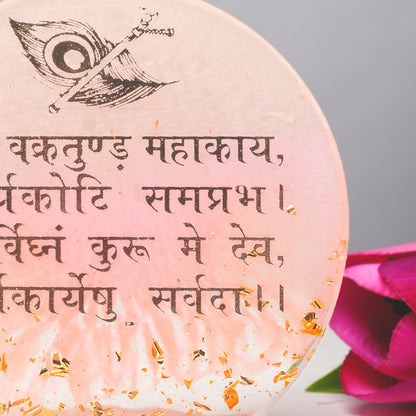 वक्रतुण्ड़ महाकाय,
र्यकोटि समप्रभ।
र्विघ्नं कुरू मे देव,
र्वकार्येषु सर्वदा।।